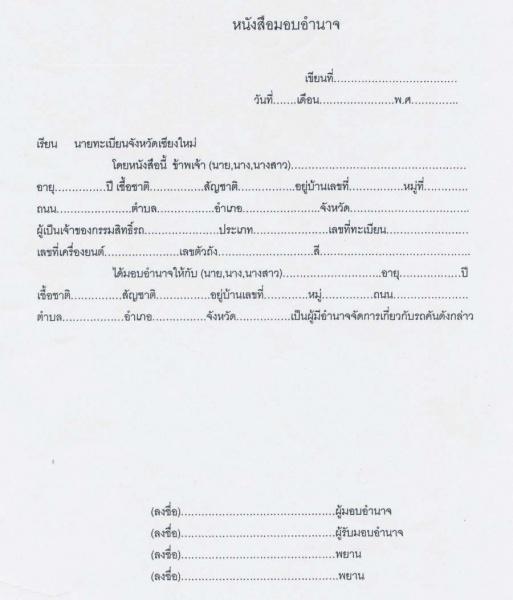 หนังสือมอบอำนาจ
เขียนที่...................................
วันที่.......เดือน......................พ.ศ.............
เรียน นายทะเบียนจังหวัดเชียงใหม่
โดยหนังสือนี้ ข้าพเจ้า (นาย,นาง,นางสาว)..................................................
อายุ...............ปี เชื้อชาติ................สัญชาติ..................อยู่บ้านเลขที่................หมู่ที่.............
ถนน...........................ตำบล................อำเภอ......................จังหวัด..................................
ผู้เป็นเจ้าของกรรมสิทธิ์รถ......................ประเภท.....................เลขที่ทะเบียน.......................
เลขที่เครื่องยนต์......................เลขตัวถัง............................สี...........................................
ได้มอบอำนาจให้กับ (นาย,นาง,นางสาว)............................อายุ.................ปี
เชื้อชาติ...............สัญชาติ................อยู่บ้านเลขที่.............หมู่..............ถนน.....................
ตำบล..................อำเภอ................จังหวัด................เป็นผู้มีอำนาจจัดการเกี่ยวกับรถคันดังกล่าว
(ลงชื่อ)............................................ผู้มอบอำนาจ
(ลงชื่อ)............................................ผู้รับมอบอำนาจ
(ลงชื่อ)............................................พยาน
(ลงชื่อ).............................................พยาน